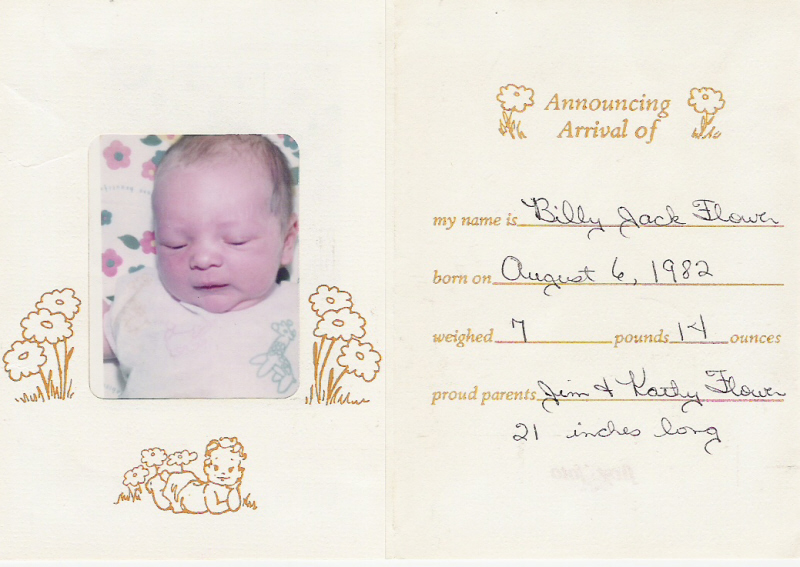 Announcing
Arrival of
my name is Billy Jack Flower
born on August 6, 1982
weighed 7 pounds 14 ounces
proud parents Jim & Kathy Flower
21 inches long